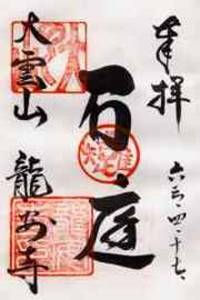 奉拝
六三・四・十七
石庭
大雲山
龍安寺